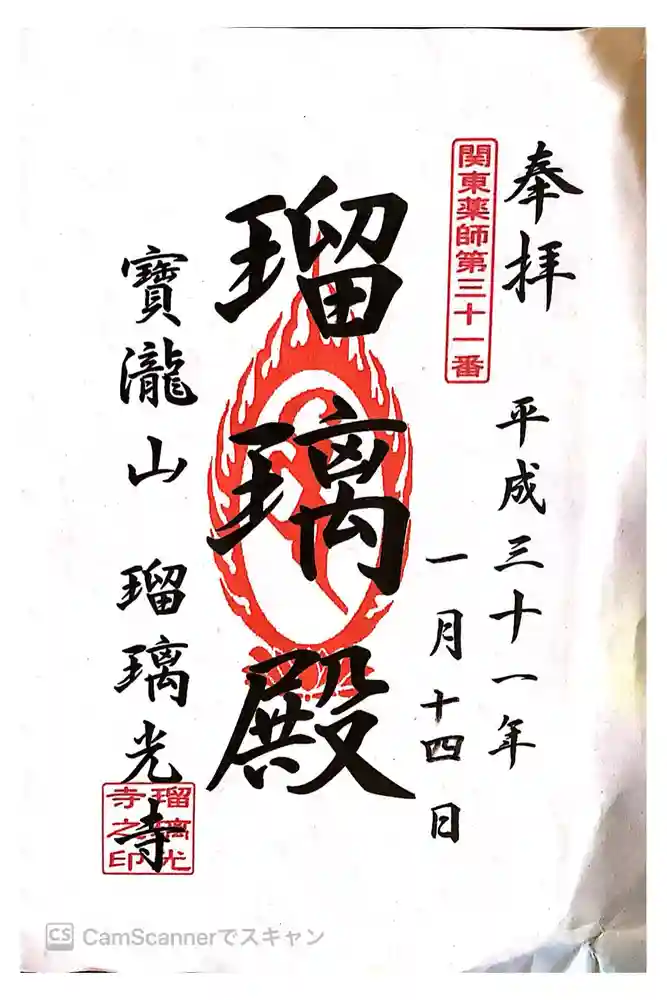 奉拝
関東薬師第三十一番
平成三十一年
一月十四日
瑠璃殿
寶瀧山 瑠璃光寺
瑠璃光
寺之印
CS CamScannerでスキャン